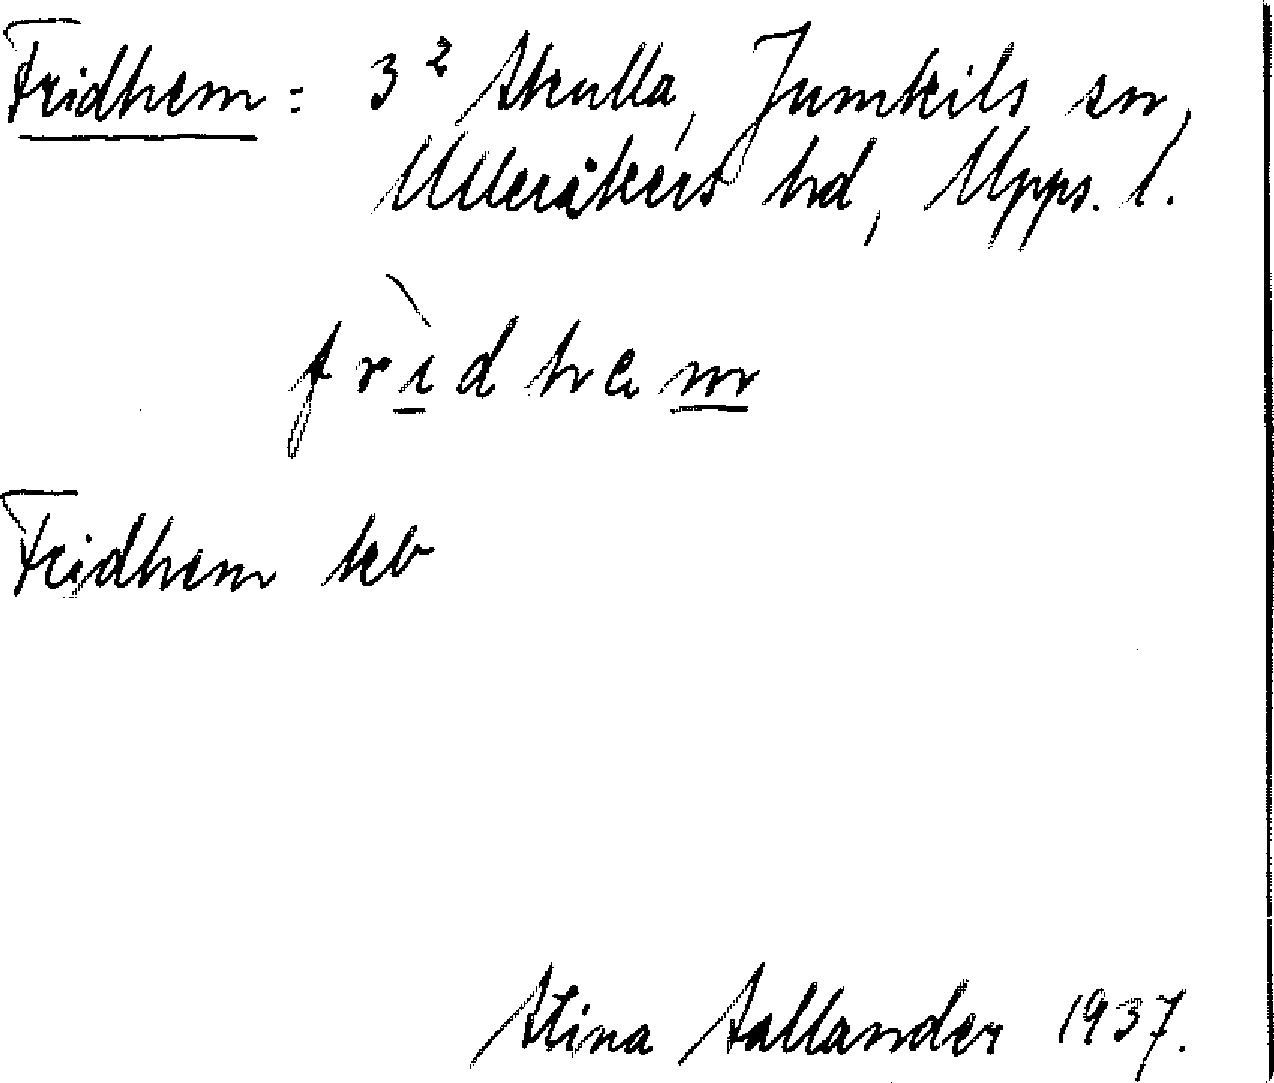 Fridhem: 3² Skulla, Jumkils sn,
Ulleråkers hd, Upps. l.
frìdhem
Fridhem kb
Stina Sallander 1937.